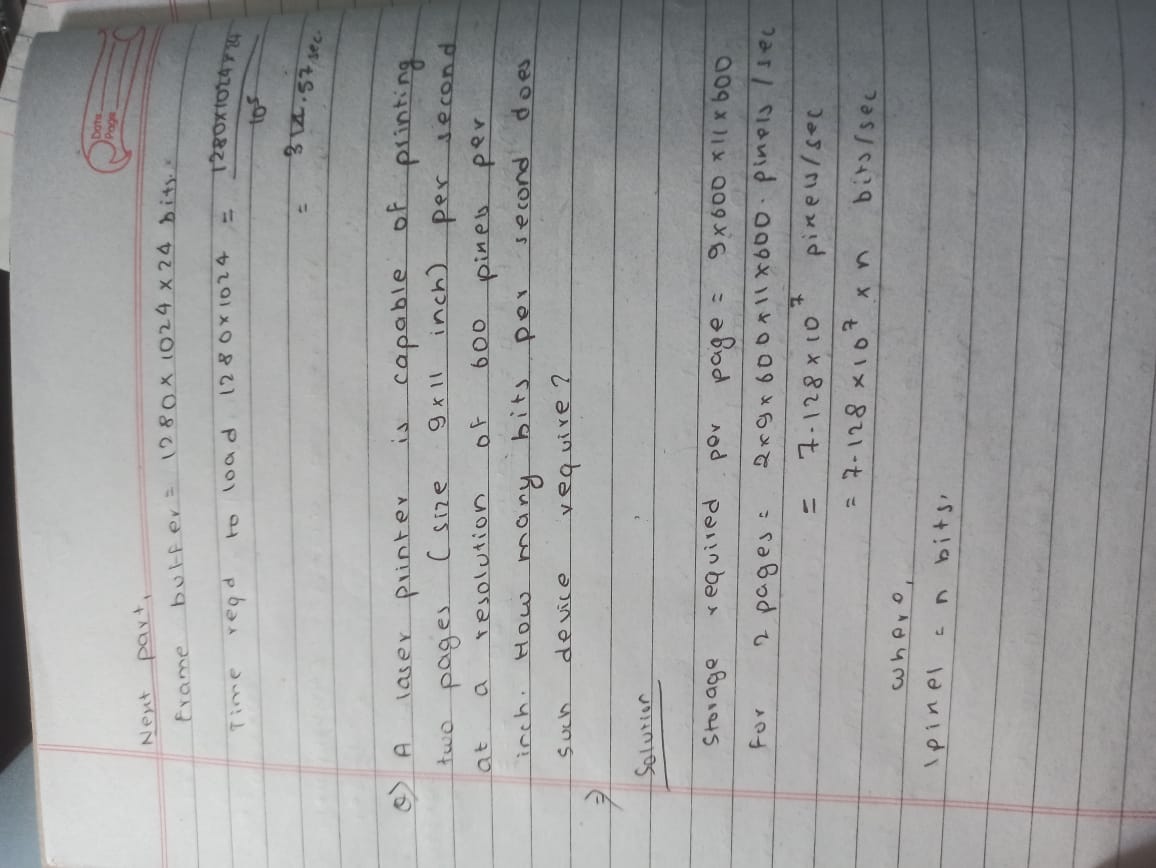 Date
Page
Next part,
Frame buffer = 1280 x 1024 x 24 bits.
Time reqd to load 1280x1024 = 1280x1024x24
10⁵
= 314.57 sec.
Q) A laser printer is capable of printing
two pages (size 9x11 inch) per second
at a resolution of 600 pixels per
inch. How many bits per second does
such device require?
⇒
Solution
Storage required per page = 9x600x11x600
For 2 pages = 2x9x600x11x600. pixels/sec
= 7.128 x 10⁷ pixels/sec
= 7.128 x 10⁷ x n bits/sec
where,
1 pixel = n bits.